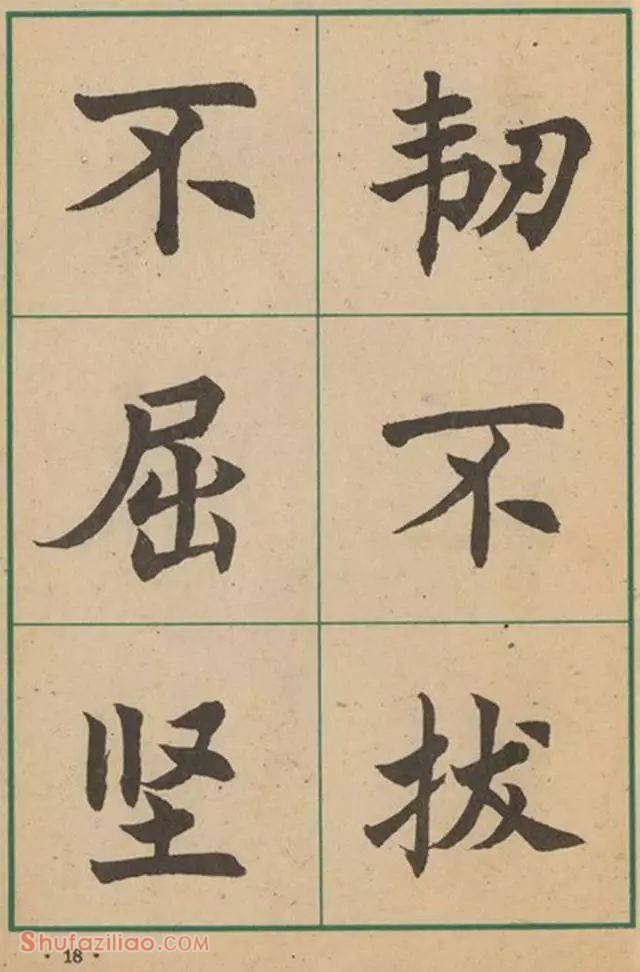 韧不拔
不屈坚
Shufaziliao.com
· 18 ·